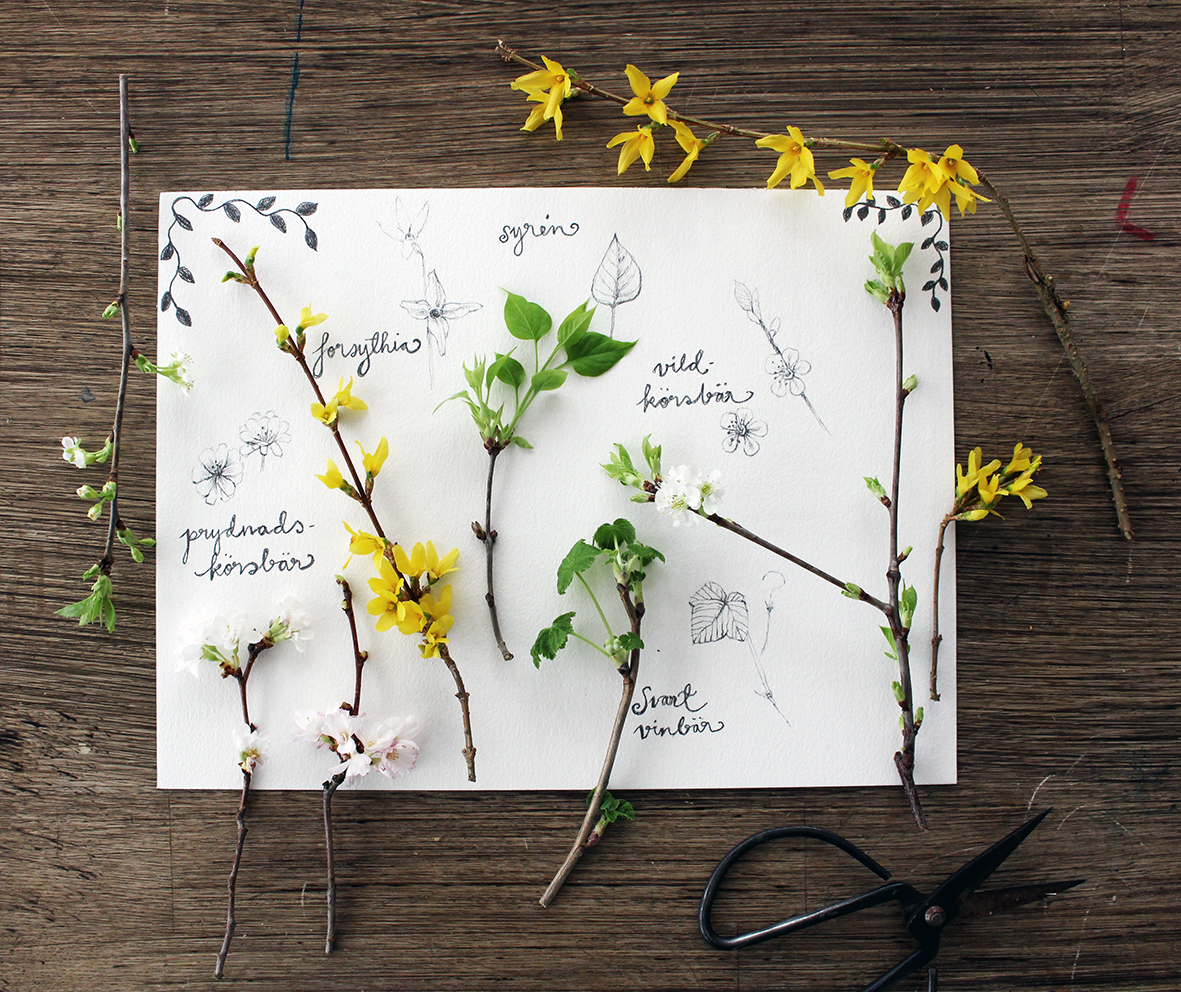 syrén
forsythia
vild-
körsbär
prydnads-
körsbär
Svart
vinbär